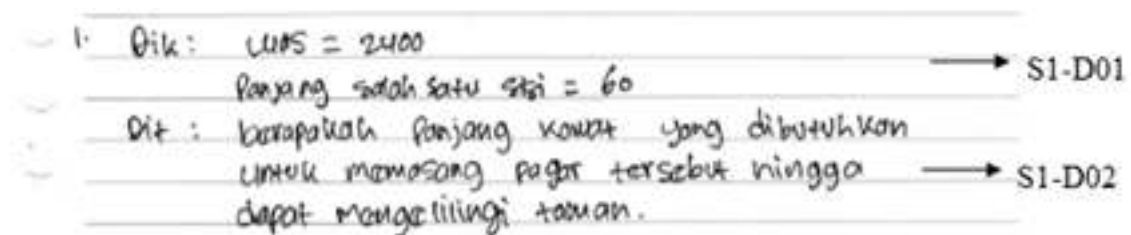 1. Dik : luas = 2400
Panjang salah satu sisi = 60
S1-D01
Dit : berapakah Panjang kawat yang dibutuhkan
untuk memasang pagar tersebut hingga
S1-D02
dapat mengelilingi taman.